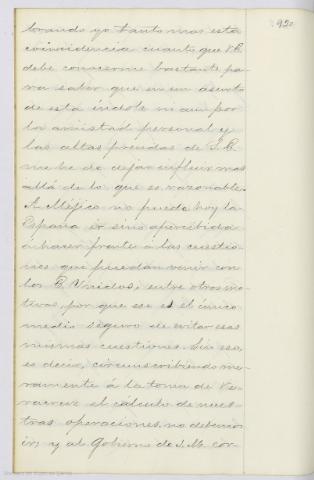 920
brando yo tanto mas esta
coincidencia cuanto que V.E.
debe conocerme bastante pa-
ra saber que en un asunto
de esta índole ni aun por
la amistad personal y
las altas prendas de S.E.
me he de dejar influir mas
allá de lo que es razonable.
A Méjico no puede hoy la
España ir sino apercibida
á hacer frente á las cuestio-
nes que puedan venir con
los E. Unidos, entre otros mo-
tivos, por que ese es el único
medio seguro de evitar esas
mismas cuestiones. Sin eso,
es decir, circunscribiendo me-
ramente á la toma de Ve-
racruz el cálculo de nues-
tras operaciones, no debemos
ir; y al Gobierno de S.M. cor-